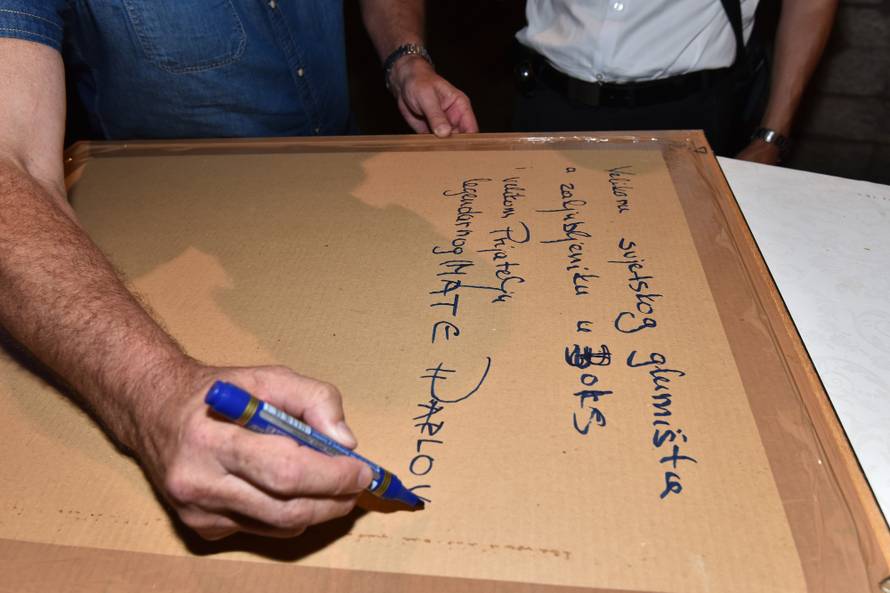 Velikanu svjetskog glumišta
a zaljubljeniku u Boks
i velikom Prijatelju
legendarnog MATE PARLOV